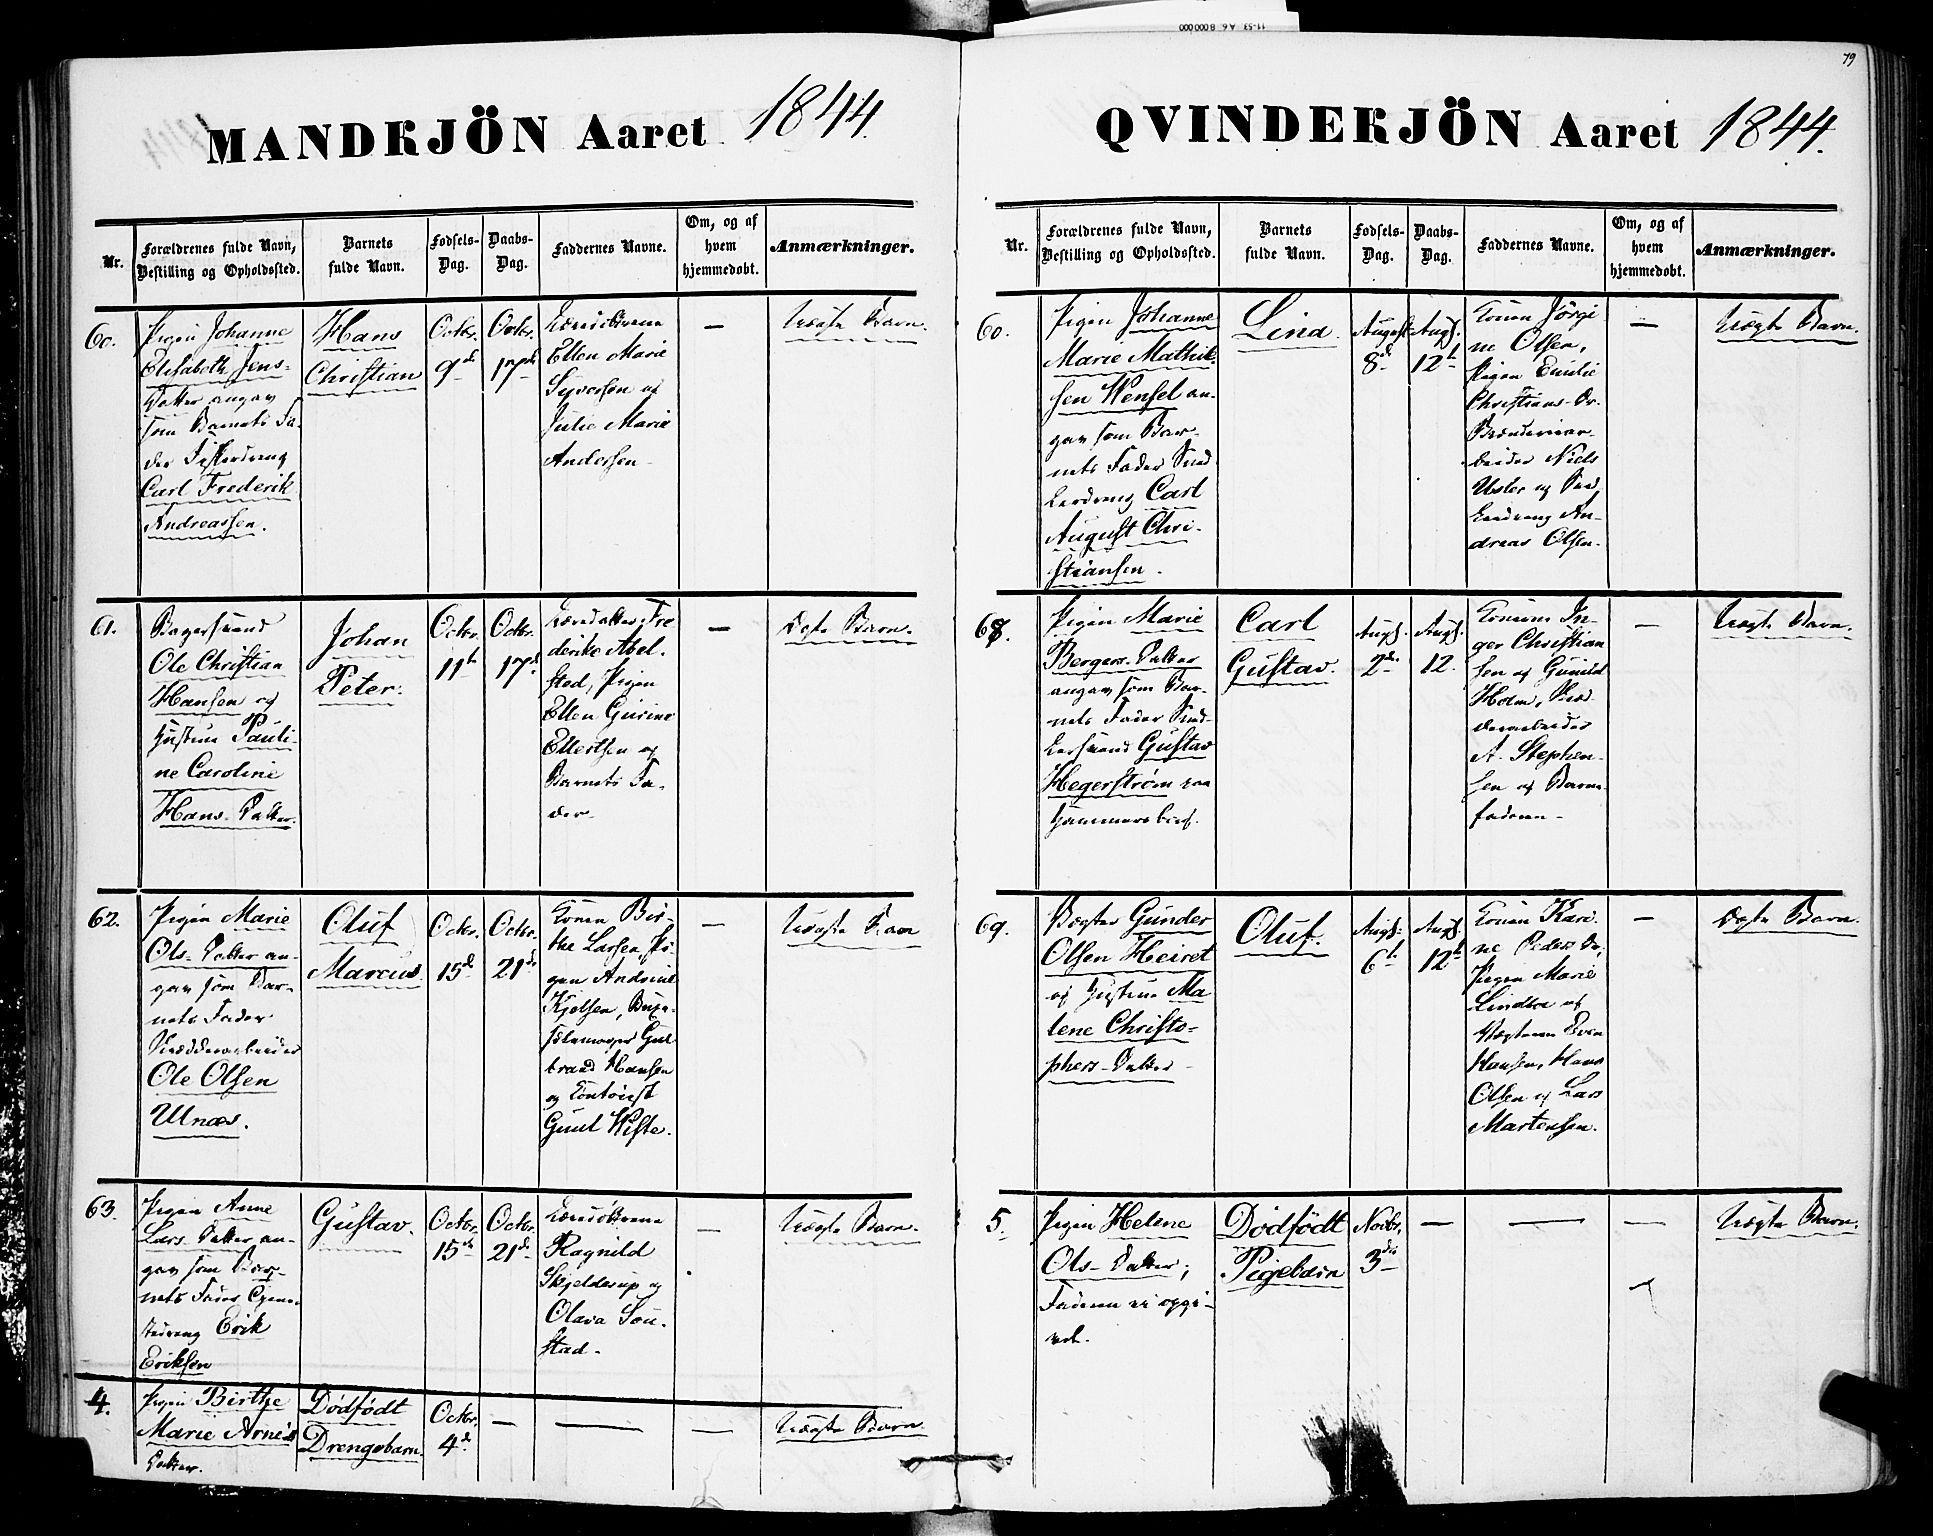 MANDKJÖN Aaret 1844.
Nr.
Forældrenes fulde Navn,
Bestilling og Opholdssted.
Barnets
fulde Navn.
Fødsels-
Dag.
Daabs-
Dag.
Faddernes Navne.
Om, og af
hvem
hjemmedøbt.
Anmærkninger.
60.
Pigen Johanne
Elisabeth Jens-
Datter angav
som Barnets Fa-
der
Carl Frederik
Andreassen.
Hans
Christian
Octbr.
9de
Octbr.
17de
Ellen Marie
Syversen og
Julie Marie
Andersen
—
Uægte Barn.
61.
Bagersvend
Ole Christian
Hansen og
Hustrue Pauli-
ne Caroline
Hans-Datter.
Johan
Peter.
Octbr.
11te
Octbr.
17de
Fre
derikke Abel-
sted, Pigen
Ellen Gurine
Ellertsen og
Barnets Fa-
der.
—
Ægte Barn.
62.
Pigen Marie
Ols-Datter an-
gav som Bar-
nets Fader
Skrædderarbeider
Ole Olsen
Unæs.
Oluf
Marcus.
Octbr.
15de
Octbr.
21de
Konen Bir-
the Larsen, Pi-
gen Andrine
Kjelsen,
Gul
brand Hansen
og Contorist
Gunl Wiste.
—
Uægte Barn
63.
Pigen Anne
Lars-Datter an-
gav som Bar-
nets Fader
Erik
Eriksen
Gustav.
Octbr.
15de
Octbr.
21de
Ragnild
Skjelderup og
Olava Son-
stad.
—
Uægte Barn.
4.
Pigen Birthe
Marie Arnes
Datter.
Dødfödt
Drengebarn.
Octbr.
4de
—
—
—
Uægte Barn.
79
QVINDEKJÖN Aaret 1844.
Nr.
Forældrenes fulde Navn,
Bestilling og Opholdssted.
Barnets
fulde Navn.
Fødsels-
Dag.
Daabs-
Dag.
Faddernes Navne.
Om, og af
hvem
hjemmedøbt.
Anmærkninger.
60.
Pigen Johanne
Marie Mathik-
sen Wensel an-
gav som Bar-
nets Fader
Carl
August Chri-
stiansen.
Lina
August
8de
Augs.
12te
Konen Jörgi
ne Olsen,
Pigen Emilie
Christians-Dr.
Niels
Usler og
An-
dreas Olsen.
—
Uægte Barn.
68.
Pigen Marie
Bergers-Datter
angav som Bar-
nets Fader
Gustav
Hegerstrøm paa
Carl
Gustav.
Augs.
2de
Augs.
12.
Konerne In-
ger Christian
sen og Gunild
Holm,
A. Stephen-
sen og Barne-
faderen.
—
Uægte Barn.
69.
Vægter Gunder
Olsen Heiret
og Hustrue Ma
lene Christo-
phers-Datter
Oluf.
Augs.
6te
Augs.
12te
Konen Kare
ne Peders Dr,
Pigen Marie
Lindbo og
Vægterne Even
Hansen, Hans
Olsen og Lars
Martensen.
—
Ægte Barn.
5.
Pigen Helene
Ols-Datter;
Faderen ei opgi-
vet.
Dödfödt
Pigebarn
Novbr.
3die
—
—
—
Uægte Barn.